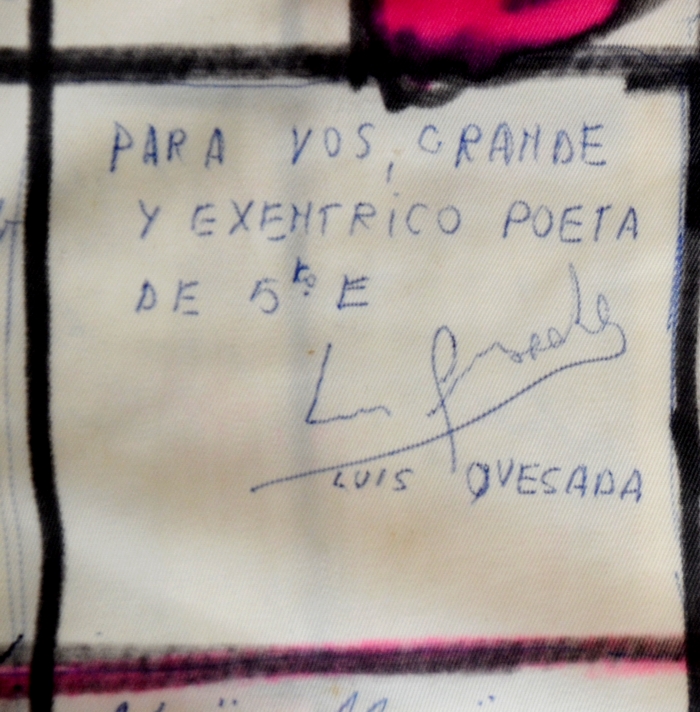 PARA VOS, GRANDE
Y EXENTRICO POETA
DE 5to E
Luis Quesada
LUIS QUESADA